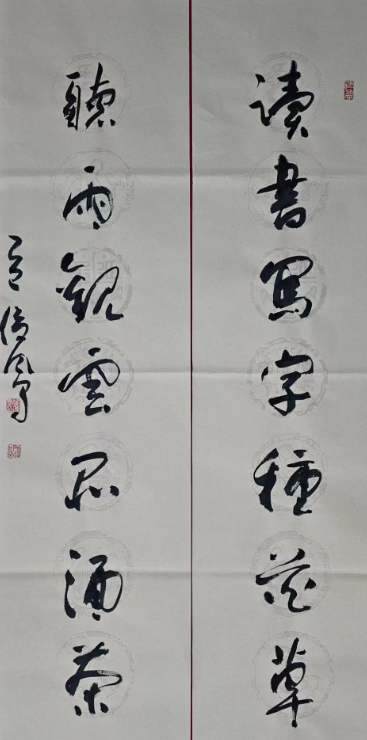 读書寫字種花草
聽雨觀雲品酒茶